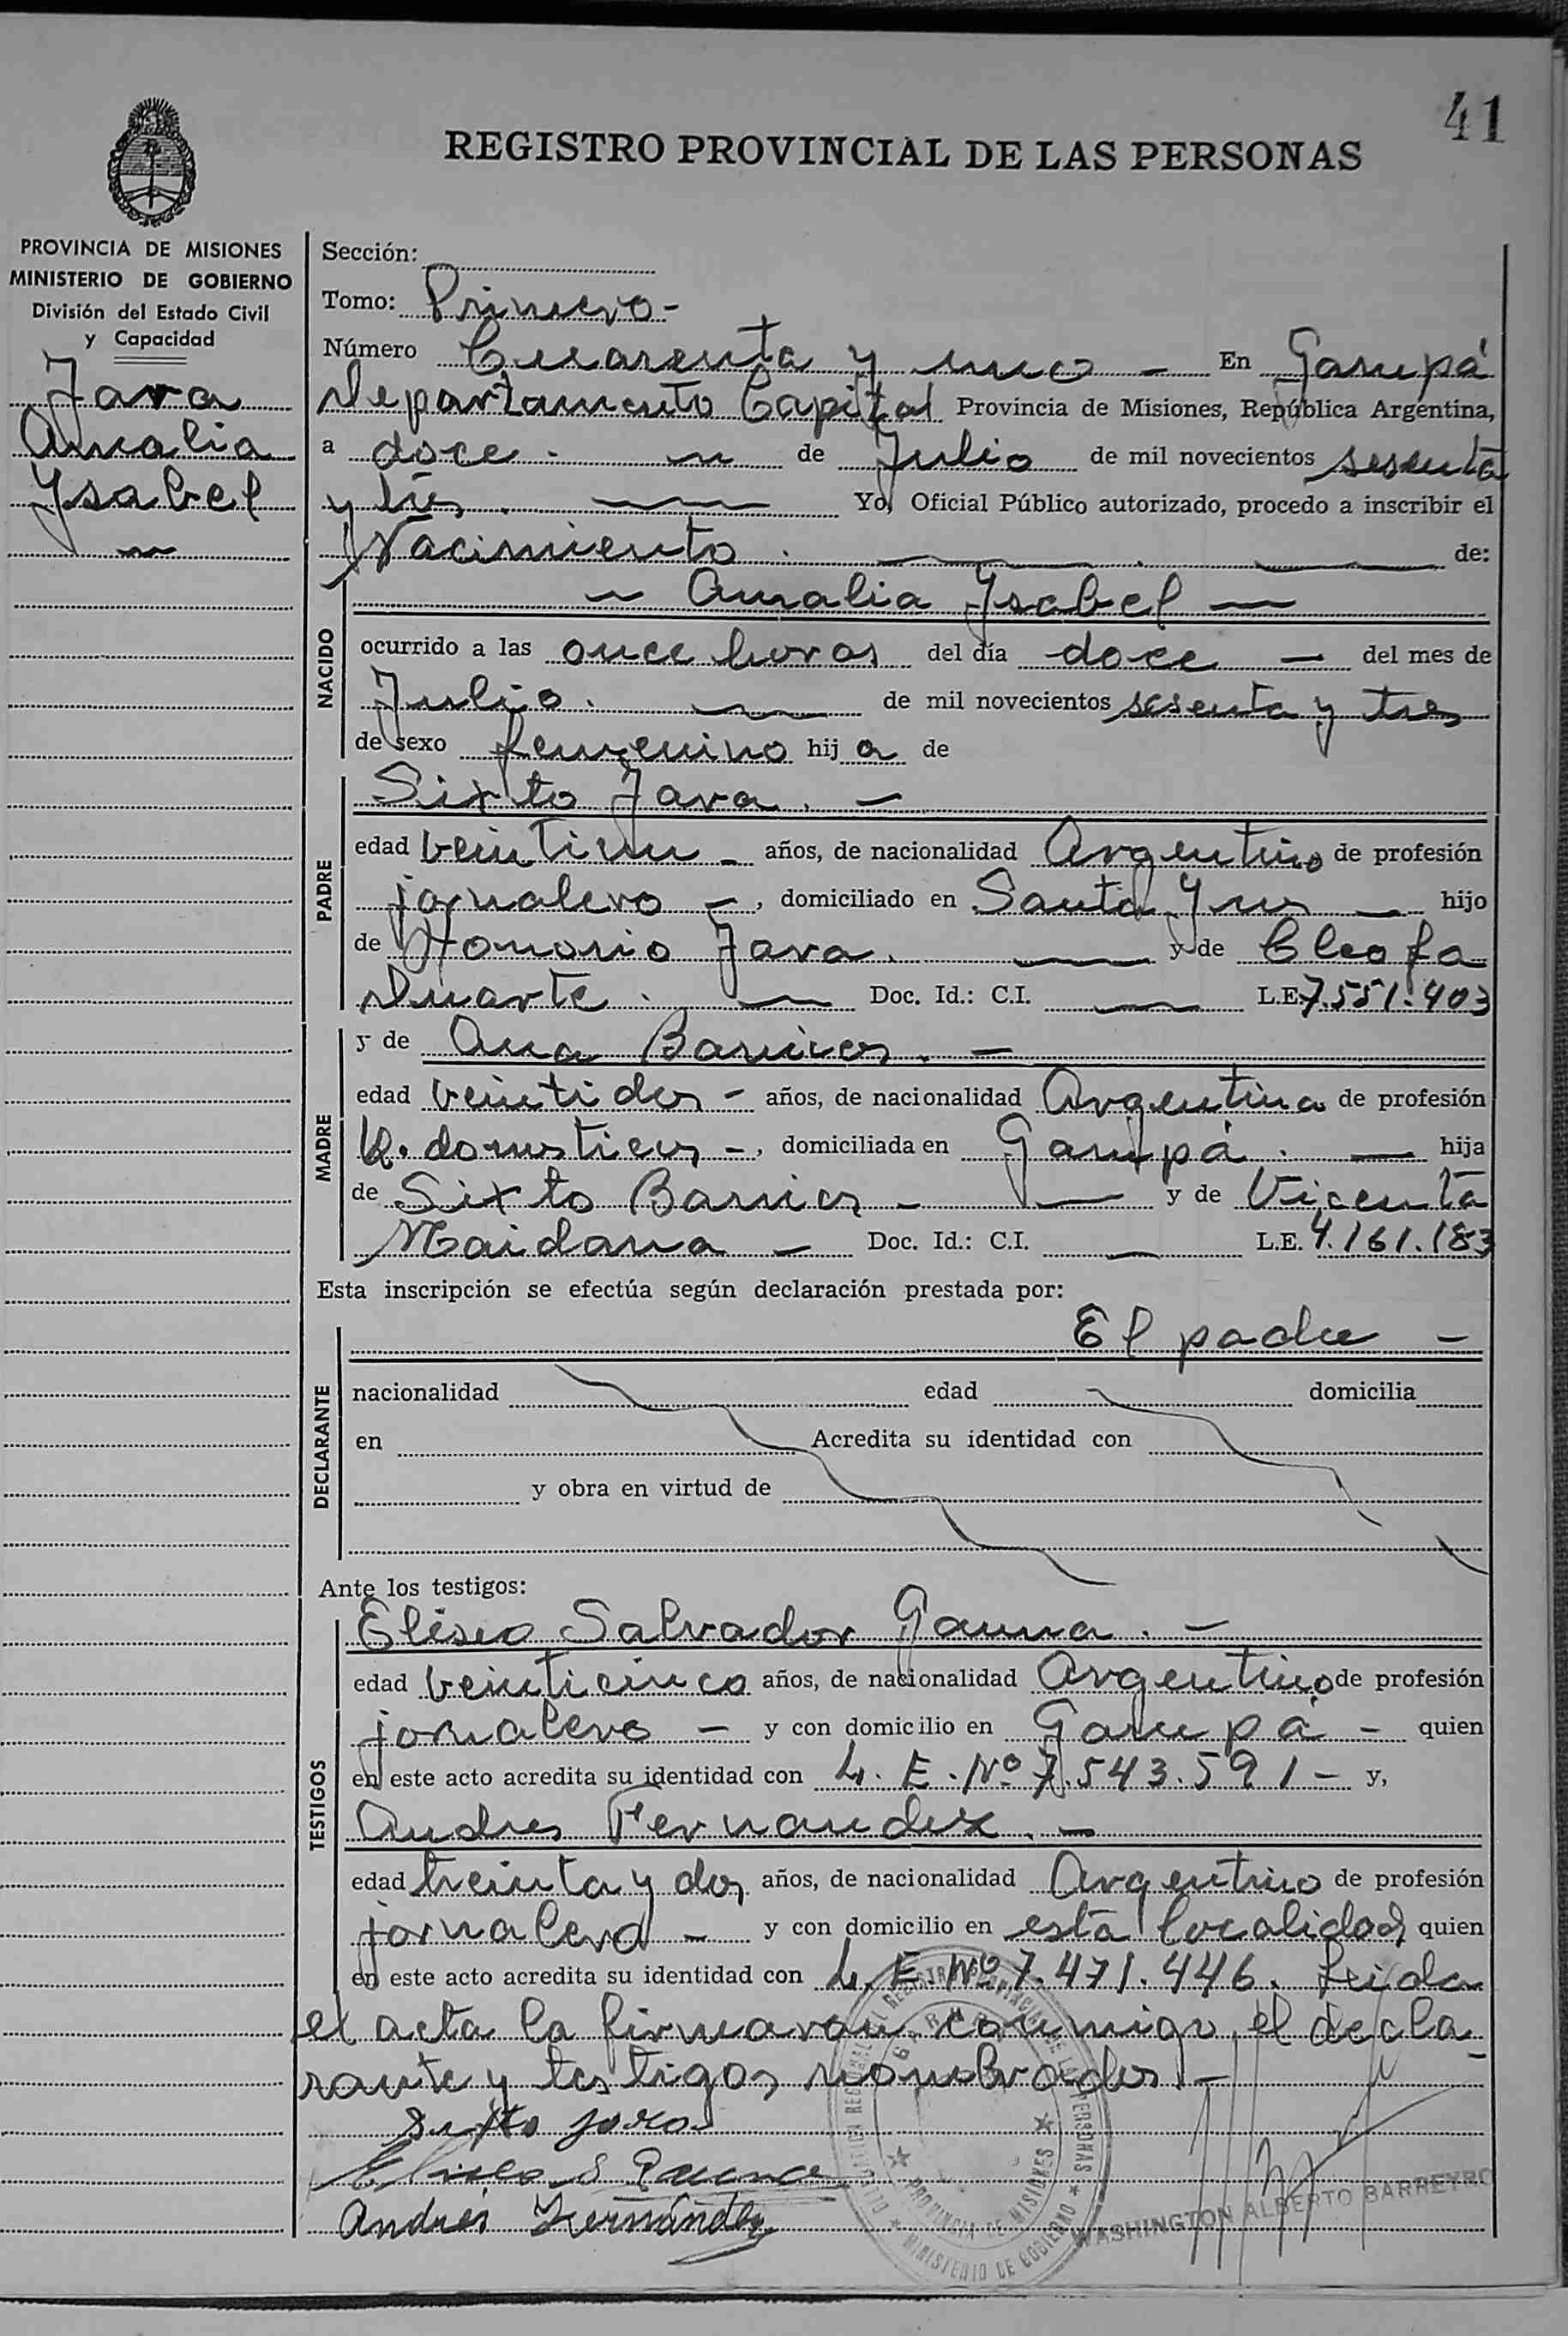 41
REGISTRO PROVINCIAL DE LAS PERSONAS
PROVINCIA DE MISIONES
MINISTERIO DE GOBIERNO
División del Estado Civil
y Capacidad
Jara
Amalia
Ysabel
Sección:
Tomo: Primero -
Número Cuarenta y uno - En Garupá
Departamento Capital Provincia de Misiones, República Argentina,
a doce. de Julio de mil novecientos sesenta
y tres. Yo, Oficial Público autorizado, procedo a inscribir el
Nacimiento. de:
NACIDO
Amalia Ysabel
ocurrido a las once horas del día doce - del mes de
Julio. de mil novecientos sesenta y tres
de sexo femenino hija de
PADRE
Sixto Jara. -
edad veintiun - años, de nacionalidad Argentino de profesión
jornalero -, domiciliado en Santa Ynes - hijo
de Honorio Jara. y de Cleofa
Duarte. Doc. Id.: C.I. L.E. 7.551.403
MADRE
y de Ana Barrios. -
edad veintidos - años, de nacionalidad Argentina de profesión
Q. domesticos -, domiciliada en Garupá. - hija
de Sixto Barrios - y de Vicenta
Maidana - Doc. Id.: C.I. - L.E. 4.161.183
Esta inscripción se efectúa según declaración prestada por:
DECLARANTE
El padre -
nacionalidad edad domicilia
en Acredita su identidad con
y obra en virtud de
Ante los testigos:
TESTIGOS
Eliseo Salvador Gauna. -
edad veinticinco años, de nacionalidad Argentino de profesión
jornalero - y con domicilio en Garupá - quien
en este acto acredita su identidad con L. E. Nº 7.543.591 - y,
Andres Fernandez. -
edad treinta y dos años, de nacionalidad Argentino de profesión
jornalero - y con domicilio en esta localidad quien
en este acto acredita su identidad con L. E Nº 7.471.446. Leida
el acta la firmaron conmigo, el decla-
rante y testigos nombrados. -
Sixto Jara
Eliseo S Gauna
Andrés Fernández
REGISTRO PROVINCIAL DE LAS PERSONAS
GARUPA
PROVINCIA DE MISIONES
MINISTERIO DE GOBIERNO
WASHINGTON ALBERTO BARREYRO